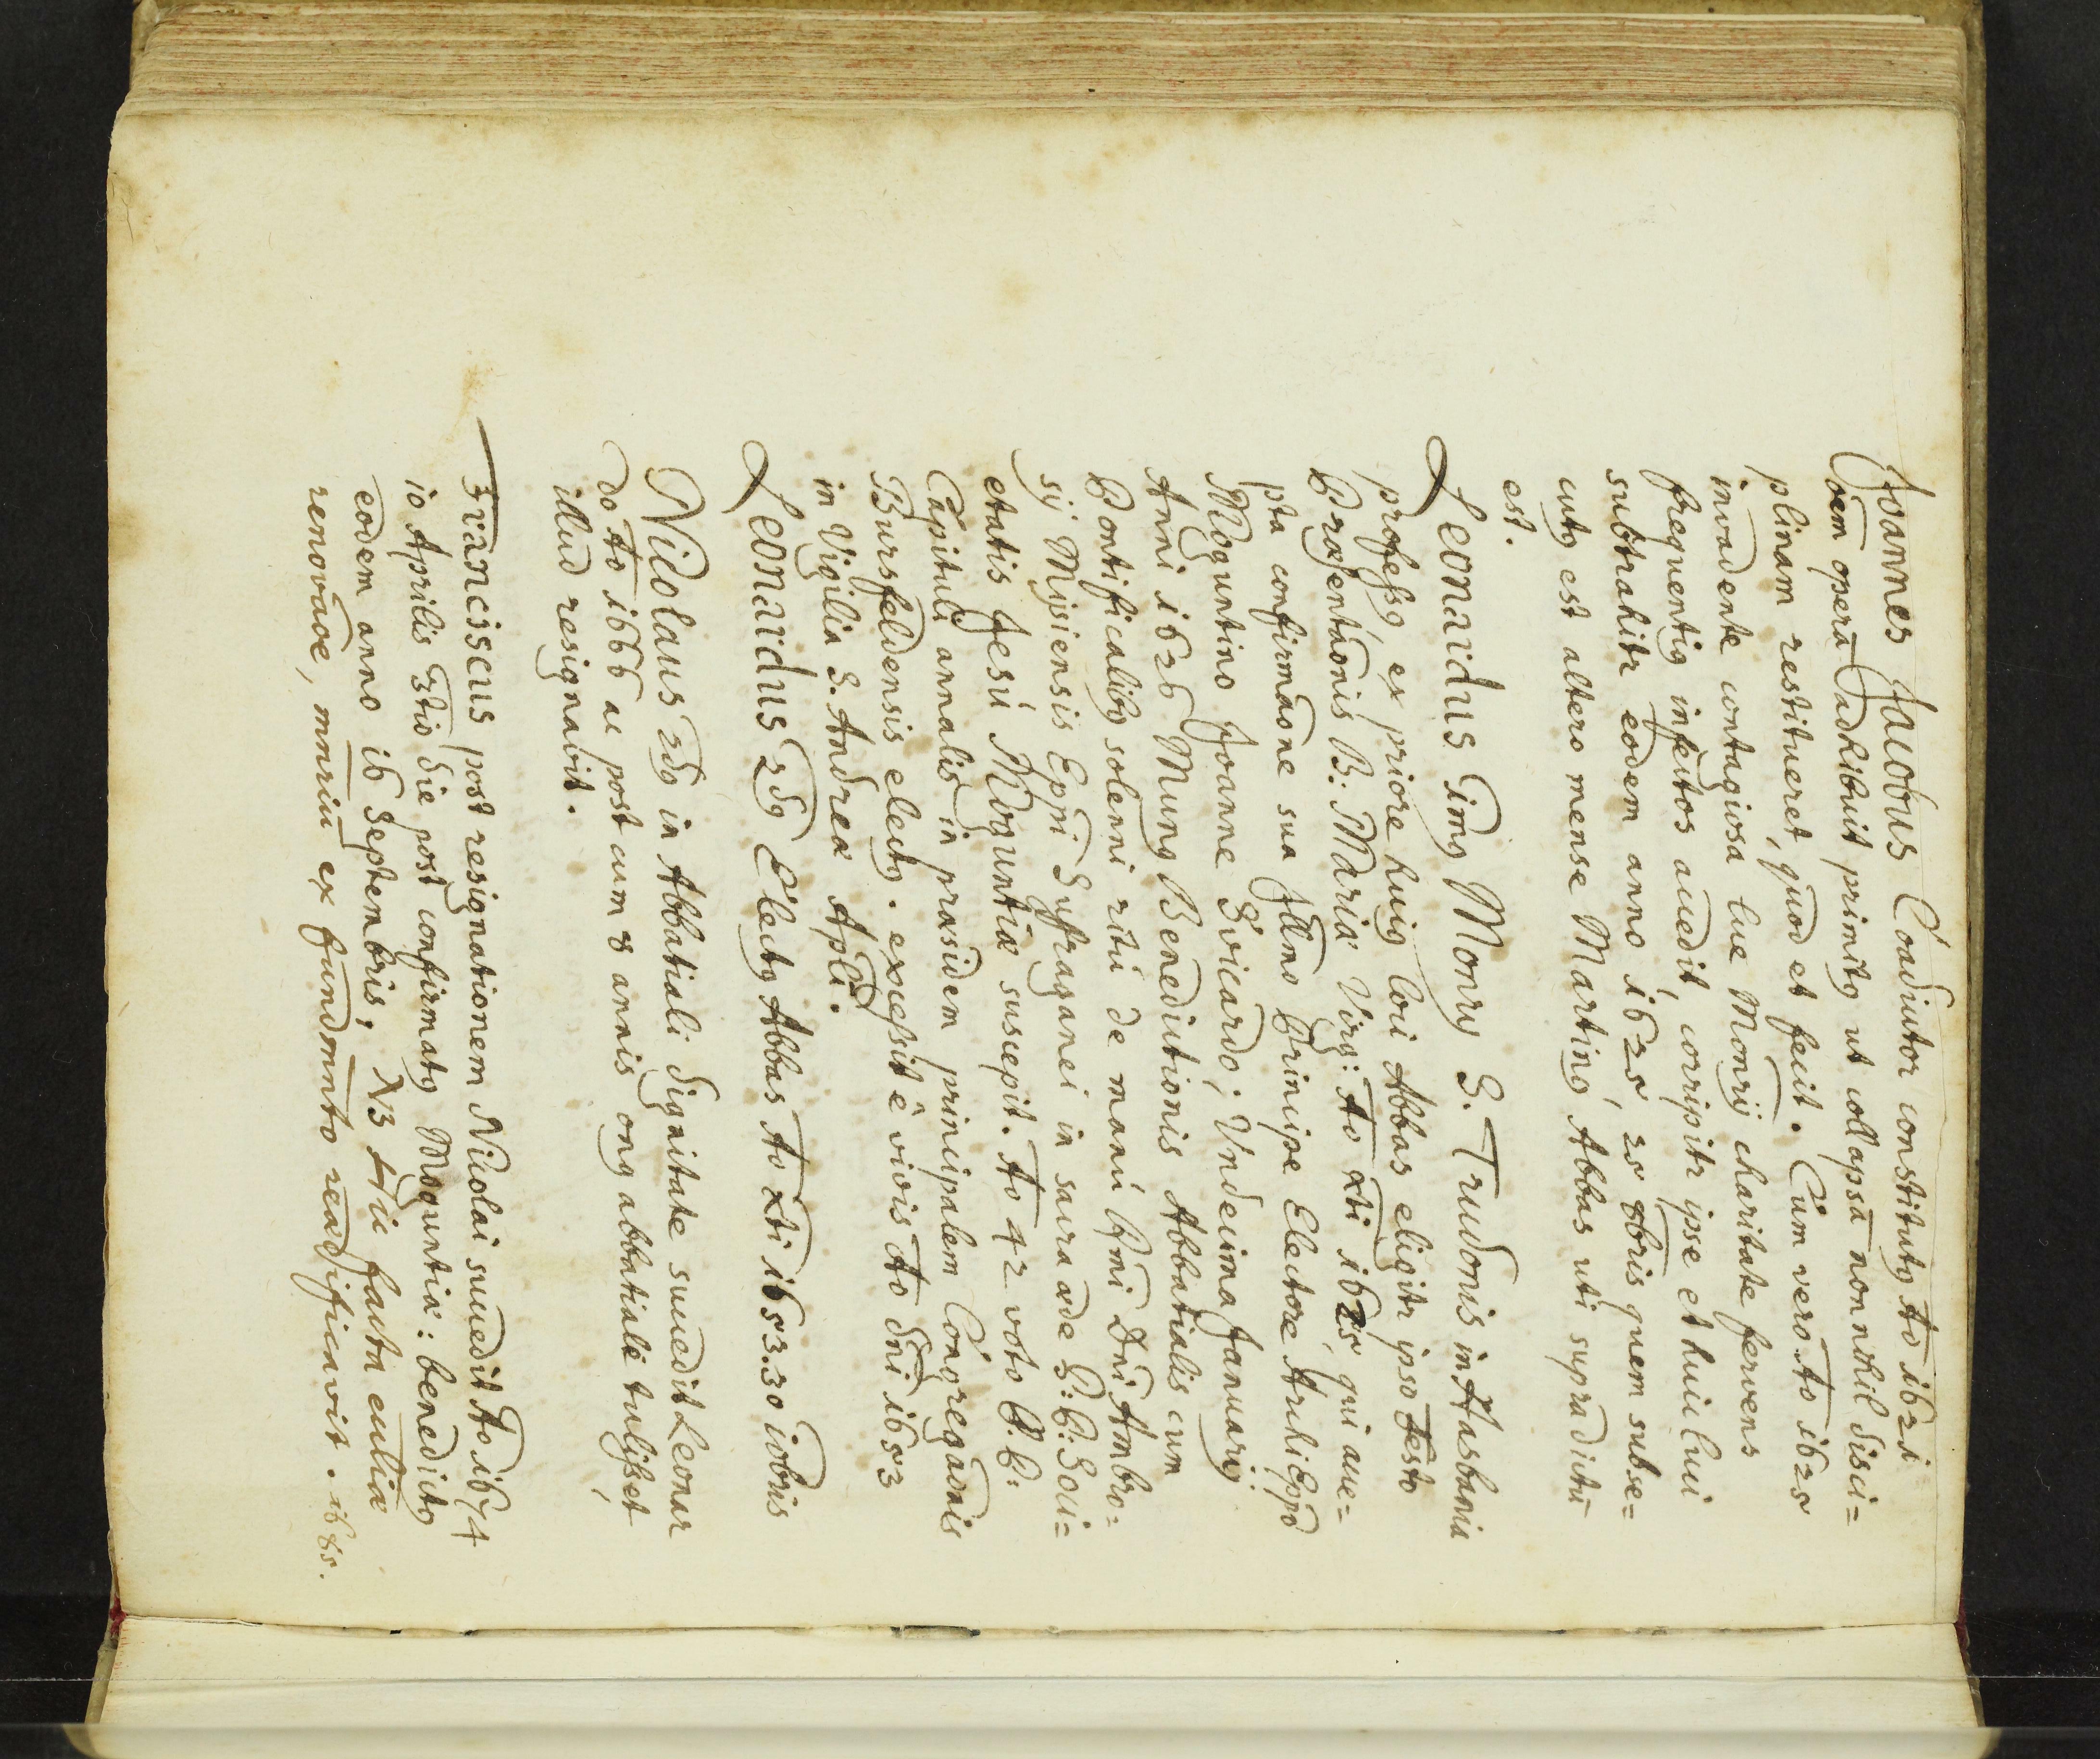 Joannes Jacobus Coadiutor constitut9 Ao 1621
Oẽm operã adhibuit primit9 ut collapsã nonnihil disci=
plinam restitueret, quod et fecit. Cùm verò Ao 1625
invadente contagiosa lue Monrij charitate fervens
frequenti9 infectos accedit, corripitr ipse et huic luci
subtrahitr eodem anno 1625, 25 8bris quem subse=
cut9 est altero mense Martin9, Abbas uti supra dictũ
est.
Leonardus 1m9 Monry S. Trudonis in Hasbania
profess9, ex priore hui9 loci Abbas eligitr ipso Festo
Præsentãonis B: Mariæ Virg: Ao Xti 1625, qui acce=
pta confirmãone sua Jllmo Principe Electore ArchiEppo
Moguntino Joanne Svicardo; Vndecima Januarij
Anni 1626 Mun9 Benedictionis Abbatialis cum
Pontificalib9 solenni ritu de manu Rmi Dni Ambro=
sij Mysiensis Eppi Suffraganei in sacra æde P.P. Soci=
etatis Jesu Moguntiæ suscepit. Ao 42 voto P.P.
Capituli annalis in præsidem principalem Congregãonis
Bursfeldensis elect9. excessit è vivis Ao dni 1653
in Vigilia S. Andreæ Apli.
Leonardus 2d9 Elect9 Abbas Ao Xti 1653. 30 10bris
Nicolaus 2d9 in Abbatiali dignitate succedit Leonar
do Ao 1666 ac post cum 8 annis on9 abbatiale tulisset,
illud resignavit.
Franciscus post resignationem Nicolai succedit Ao 1674
10 Aprilis 3tio die post confirmat9 Moguntiæ: benedict9
eodem anno 16 Septembris, NB Hic facta eccliæ
renovãoe, mnriũ ex fundamnto reædificavit. 1685.